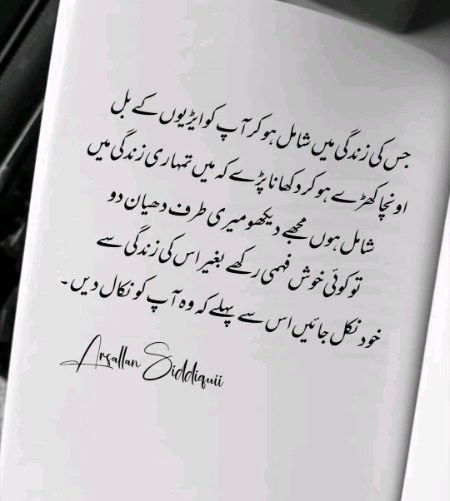 جس کی زندگی میں شامل ہو کر آپ کو ایڑیوں کے بل
اونچا کھڑے ہو کر دکھانا پڑے کہ میں تمہاری زندگی میں
شامل ہوں مجھے دیکھو میری طرف دھیان دو
تو کوئی خوش فہمی رکھے بغیر اس کی زندگی سے
خود نکل جائیں اس سے پہلے کہ وہ آپ کو نکال دیں۔
Arsallan Siddiquii